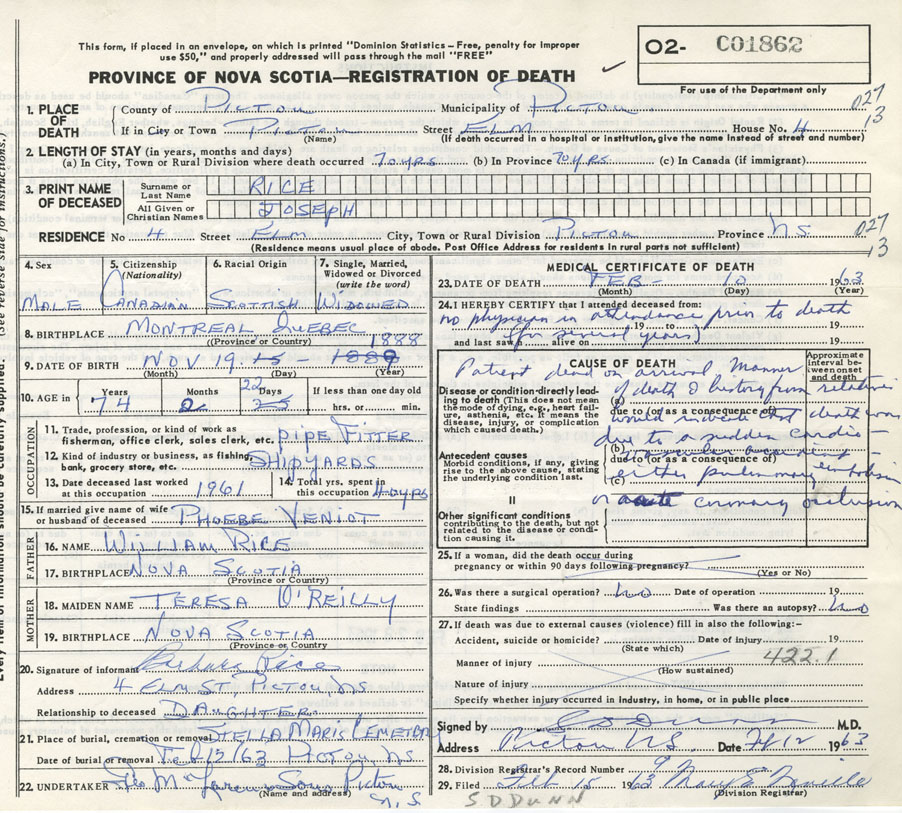 This form, if placed in an envelope, on which is printed "Dominion Statistics – Free, penalty for improper
use $50," and properly addressed will pass through the mail "FREE"
O2- C01862
PROVINCE OF NOVA SCOTIA—REGISTRATION OF DEATH
For use of the Department only
027
13
1. PLACE OF DEATH
County of Pictou Municipality of Pictou
If in City or Town Pictou Street ELM House No. 4
(Name) (If death occurred in a hospital or institution, give the name instead of street and number)
2. LENGTH OF STAY (in years, months and days)
(a) In City, Town or Rural Division where death occurred 70 yrs (b) In Province 70 yrs (c) In Canada (if immigrant)
3. PRINT NAME OF DECEASED
Surname or Last Name RICE
All Given or Christian Names JOSEPH
RESIDENCE No 4 Street Elm City, Town or Rural Division Pictou Province NS
027
13
(Residence means usual place of abode. Post Office Address for residents in rural parts not sufficient)
4. Sex
MALE
5. Citizenship (Nationality)
CANADIAN
6. Racial Origin
SCOTTISH
7. Single, Married, Widowed or Divorced (write the word)
WIDOWED
8. BIRTHPLACE MONTREAL QUEBEC
(Province or Country)
1888
9. DATE OF BIRTH NOV 19 15 - 1889
(Month) (Day) (Year)
10. AGE in Years Months Days If less than one day old
22
74 2 25 hrs. or min.
OCCUPATION
11. Trade, profession, or kind of work as fisherman, office clerk, sales clerk, etc. PIPE FITTER
12. Kind of industry or business, as fishing, bank, grocery store, etc. SHIPYARDS
13. Date deceased last worked at this occupation 1961
14. Total yrs. spent in this occupation 40 yrs
15. If married give name of wife or husband of deceased PHOEBE VENIOT
FATHER
16. NAME WILLIAM RICE
17. BIRTHPLACE NOVA SCOTIA
(Province or Country)
MOTHER
18. MAIDEN NAME TERESA O'REILLY
19. BIRTHPLACE NOVA SCOTIA
(Province or Country)
20. Signature of informant Barbara Rice
Address 4 ELM ST, PICTOU, NS
Relationship to deceased DAUGHTER
21. Place of burial, cremation or removal STELLA MARIS CEMETERY
Date of burial or removal Feb 12/63 PICTOU, NS
22. UNDERTAKER Sons Pictou
(Name and address) N.S.
MEDICAL CERTIFICATE OF DEATH
23. DATE OF DEATH FEB - 10 1963
(Month) (Day)
24. I HEREBY CERTIFY that I attended deceased from:
no physician in attendance prior to death
19 to 19
(for several years)
and last saw alive on 19
CAUSE OF DEATH
Approximate interval between onset and death
Patient dead on arrival Manner
of death & history from relative
would indicate that death was
due to a sudden cardio-
vascular accident -
either pulmonary embolism
or acute coronary occlusion
Disease or condition-directly leading to death (This does not mean the mode of dying, e.g., heart failure, asthenia, etc. It means the disease, injury, or complication which caused death.)
(a)
due to (or as a consequence of)
Antecedent causes
Morbid conditions, if any, giving rise to the above cause, stating the underlying condition last.
(b)
due to (or as a consequence of)
(c)
II
Other significant conditions
contributing to the death, but not related to the disease or condition causing it.
25. If a woman, did the death occur during
pregnancy or within 90 days following pregnancy?
(Yes or No)
26. Was there a surgical operation? No Date of operation 19
State findings Was there an autopsy? No
27. If death was due to external causes (violence) fill in also the following:–
Accident, suicide or homicide? Date of injury 19
(State which)
422.1
Manner of injury
(How sustained)
Nature of injury
Specify whether injury occurred in Industry, in home, or in public place
Signed by M.D.
Address Pictou NS Date 2/12 1963
28. Division Registrar's Record Number 9
29. Filed Feb 15 1963
(Division Registrar)
S D DUNN
(See reverse side for instructions.)